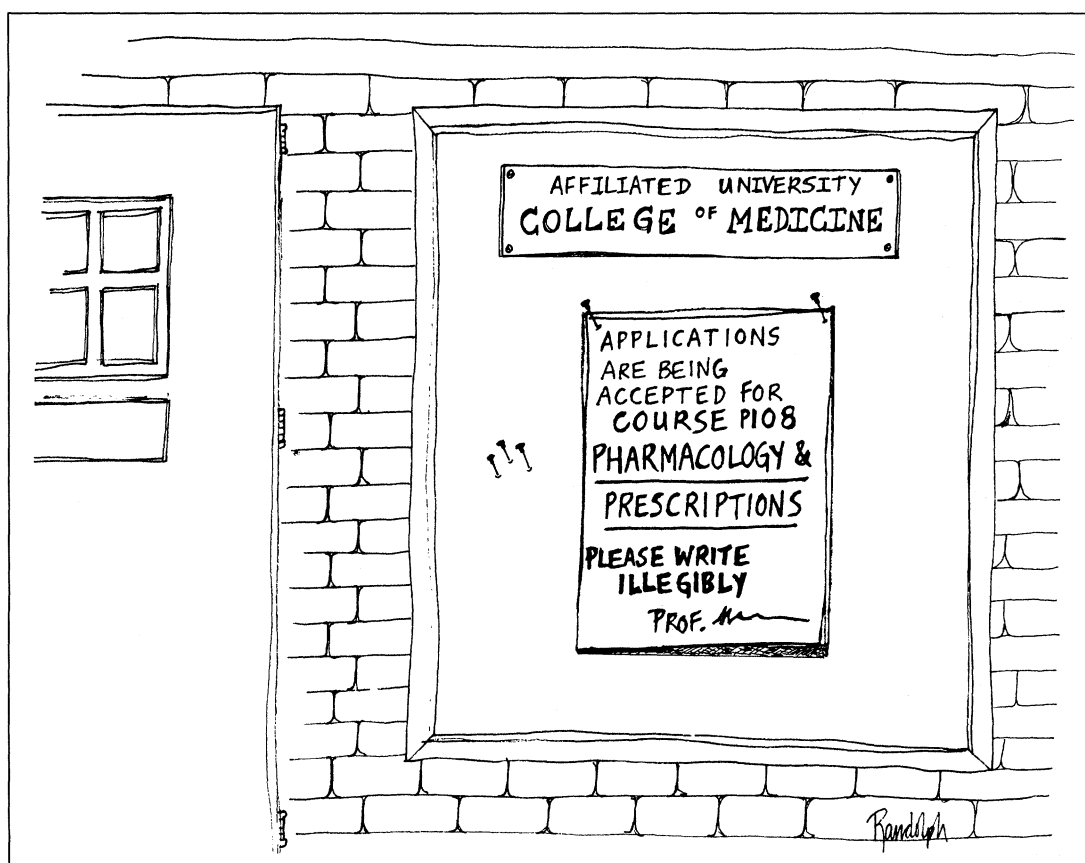 AFFILIATED UNIVERSITY
COLLEGE OF MEDICINE
APPLICATIONS
ARE BEING
ACCEPTED FOR
COURSE P108
PHARMACOLOGY &
PRESCRIPTIONS
PLEASE WRITE
ILLEGIBLY
PROF.
Randolph